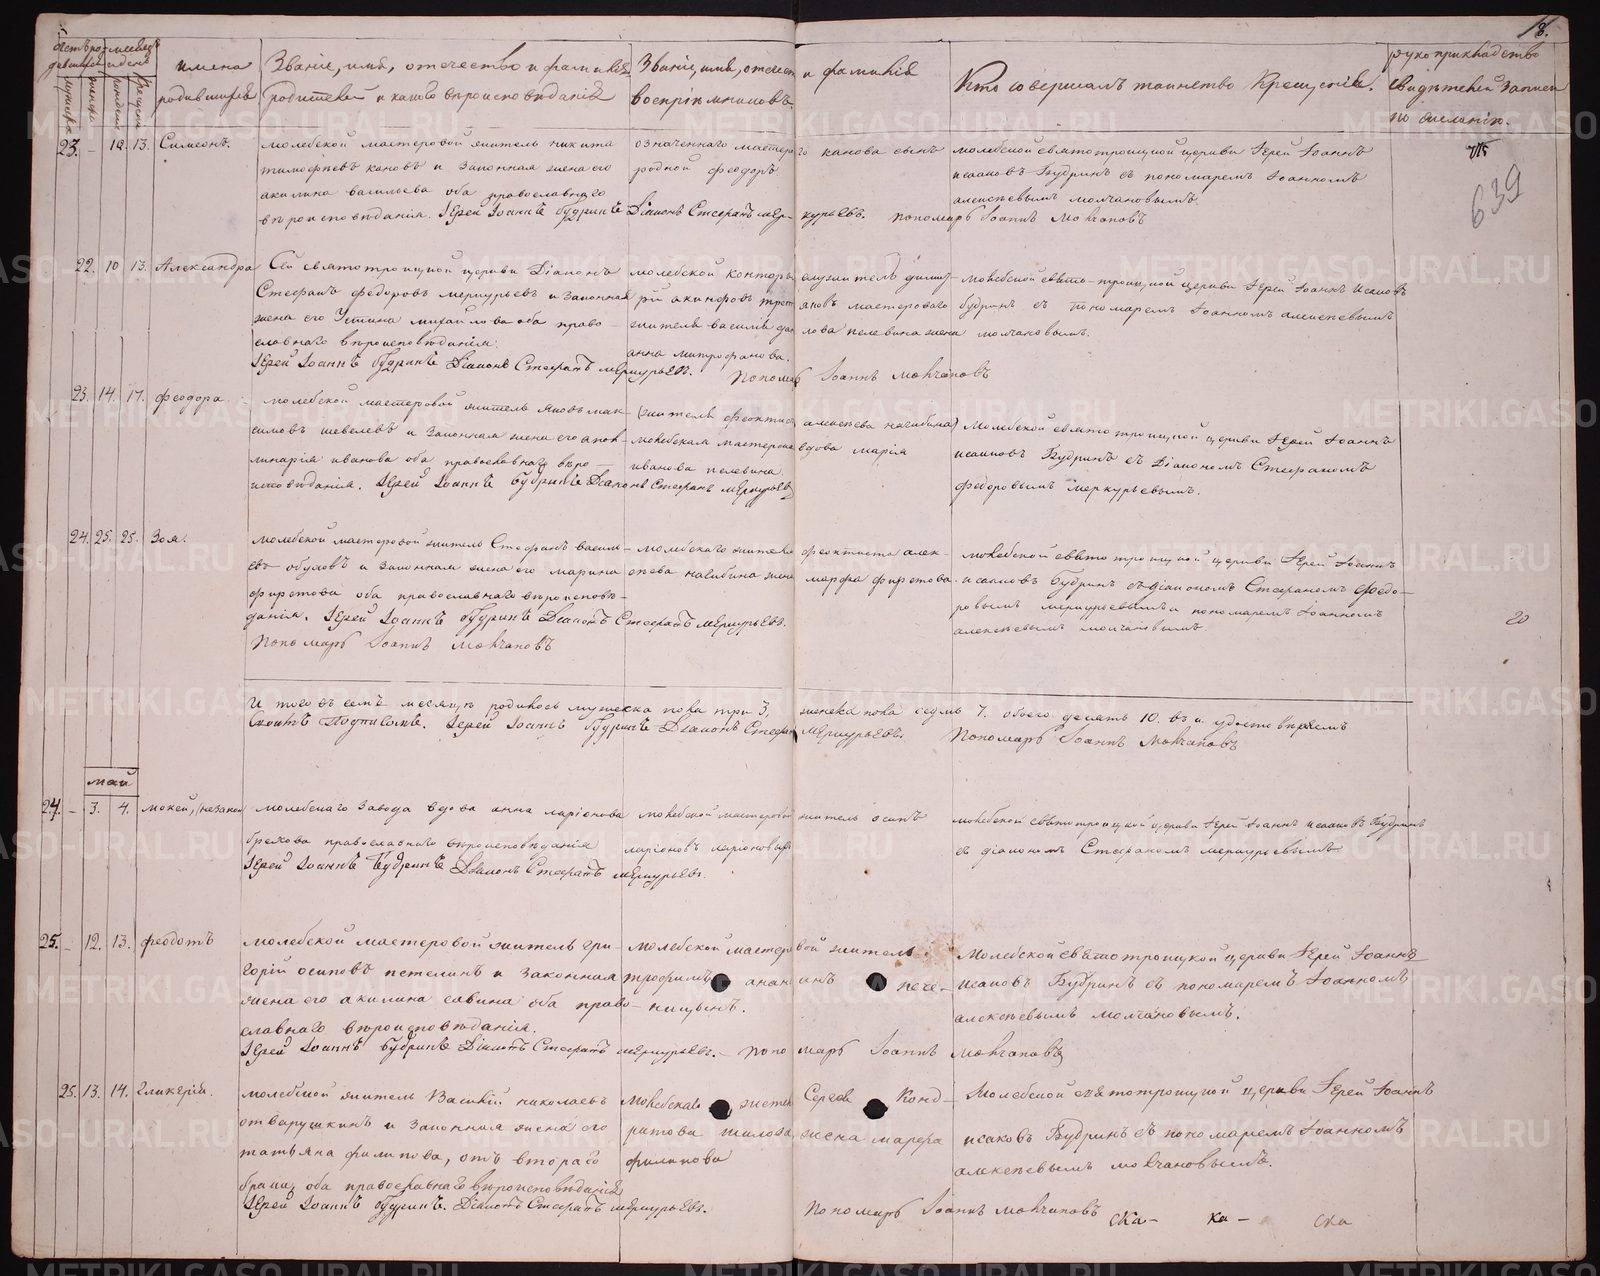 18.
имена родившихся
Званіе, имя, отечество и фамилія родителей и какого вѣроисповѣданія
Званіе, имя, отечест и фамилія воспріемниковъ
Кто совершалъ таинство Крещенія.
рукоприкладство свидѣтелей записи по желанію.
639
23. – 12. 13. Симеонъ.
молебской мастеровой житель никита
тимофѣевъ кановъ и законная жена его
акилина васильева оба православнаго
вѣроисповѣданія. Іерей Іоаннъ Будринъ Діаконъ Стефанъ мер-
означеннаго мастерого канова сынъ
родной феодоръ
молебской святотроицкой церкви Іерей Іоаннъ
исааковъ Будринъ съ пономаремъ Іоанномъ
алексѣевымъ молчановымъ.
курьевъ. пономарь Іоаннъ Молчановъ
22. 10 13. Александра
Сей святотроицкой церкви Діаконъ
Стефанъ федоровъ меркурьевъ и законная
жена его Устина михайлова оба право-
славнаго вѣроисповѣданія.
Іерей Іоаннъ Будринъ Діаконъ Стефанъ меркурьевъ. Пономарь Іоаннъ молчановъ
молебской конторы служитель
анна митрофанова.
молебской свято-троицкой церкви Іерей Іоаннъ Исаковъ
будринъ съ пономаремъ Іоанномъ алексѣевымъ
молчановымъ.
23. 14. 17. феодора.
молебской мастеровой житель яковъ мак-
симовъ шевелевъ и законная жена его апол-
линарія иванова оба православнаго вѣро-
исповѣданія. Іерей Іоаннъ Будринъ Діаконъ Стефанъ меркурьевъ
(жителя феоктиста алексѣева нагибина)
молебская мастерова вдова марія
иванова пелевина
Молебской святотроицкой церкви Іерей Іоаннъ
исааковъ Будринъ съ Діакономъ Стефаномъ
федоровымъ меркурьевымъ.
24. 25. 25. Зоя.
молебской мастеровой житель Стефанъ василь-
евъ обуховъ и законная жена его марина
фирстова оба православнаго вѣроисповѣ-
данія. Іерей Іоаннъ Будринъ Діаконъ Стефанъ меркурьевъ.
Пономарь Іоаннъ молчановъ
молебскаго жителя феоктиста алек-
сѣева нагибина жена марфа фирстова
молебской святотроицкой церкви Іерей Іоаннъ
исааковъ Будринъ съ діакономъ Стефаномъ Федо-
ровымъ меркурьевымъ и пономаремъ Іоанномъ
алексѣевымъ молчановымъ
20
И того въ семъ мѣсяцѣ родилось мужеска пола три 3, женска пола седмь 7. обоего десять 10. въ ч. удостовѣряемъ
Іерей Іоаннъ Будринъ Діаконъ Стефанъ меркурьевъ. Пономарь Іоаннъ Молчановъ
май
24. – 3. 4. мокей, (незакон
молебскаго завода вдова анна ларіонова
брехова православнаго вѣроисповѣданія
Іерей Іоаннъ Будринъ Діаконъ Стефанъ меркурьевъ.
молебской мастеровой житель осипъ
ларіоновъ
молебской святотроицкой церкви Іерей Іоаннъ исааковъ Будринъ
съ діакономъ Стефаномъ меркурьевымъ
25. – 12. 13. феодотъ
молебской мастеровой житель гри-
горій осиповъ петелинъ и законная
жена его акилина савина оба право-
славнаго вѣроисповѣданія.
Іерей Іоаннъ Будринъ Діаконъ Стефанъ меркурьевъ. – пономарь Іоаннъ молчановъ
молебской мастеровой житель
трофимъ ананьинъ пече-
ницынъ.
молебской святотроицкой церкви Іерей Іоаннъ
исааковъ Будринъ съ пономаремъ Іоанномъ
алексѣевымъ молчановымъ.
25. 13. 14. Гликерія.
молебской житель Василій николаевъ
отварушкинъ и законная жена его
татьяна филипова, отъ втораго
брака, оба православнаго вѣроисповѣданія
Іерей Іоаннъ Будринъ. Діаконъ Стефанъ меркурьевъ.
молебскаго жителя Сергѣя Конд-
ратова шилова, жена марфа
филипова
Молебской святотроицкой церкви Іерей Іоаннъ
исаковъ Будринъ съ пономаремъ Іоанномъ
алексѣевымъ молчановымъ.
Пономарь Іоаннъ молчановъ
ска- ка- ска
METRIKI.GASO-URAL.RU